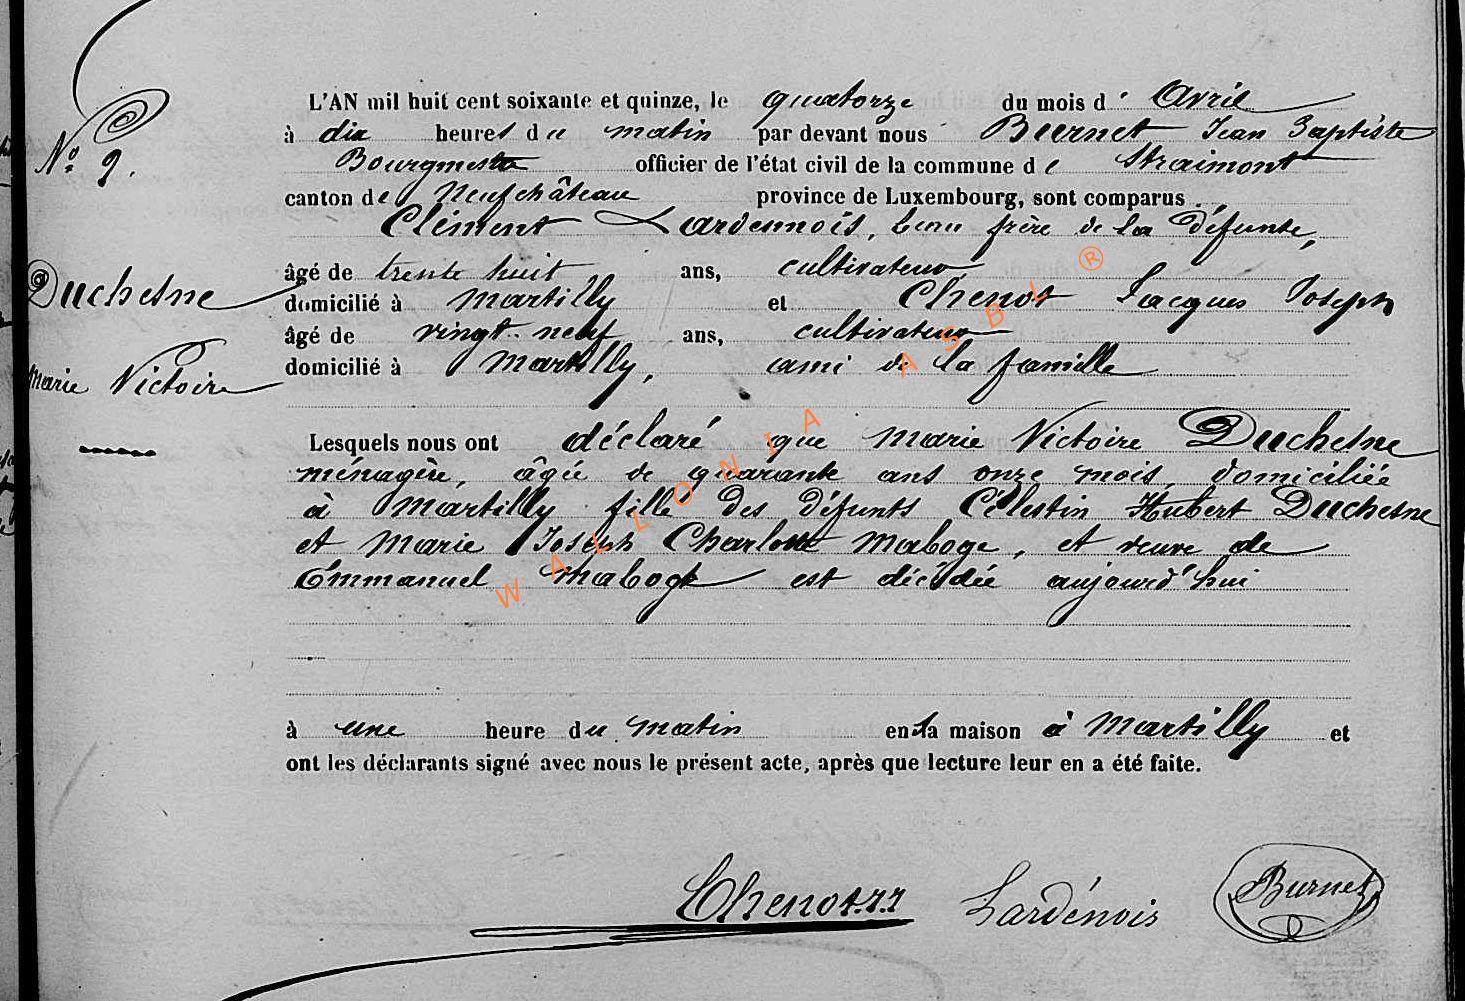 L'AN mil huit cent soixante et quinze, le quatorze du mois d' Avril
N° 9. à dix heures du matin par devant nous Burnet Jean Baptiste
Bourgmestre officier de l'état civil de la commune de Straimont
canton de Neufchâteau province de Luxembourg, sont comparus
Clément Lardennois, beau frère de la défunte,
Duchesne âgé de trente huit ans, cultivateur
domicilié à Martilly et Chenot Jacques Joseph
âgé de vingt-neuf ans, cultivateur
Marie Victoire domicilié à Martilly, ami de la famille
Lesquels nous ont déclaré que Marie Victoire Duchesne
ménagère, âgée de quarante ans onze mois, domiciliée
à Martilly fille des défunts Célestin Hubert Duchesne
et Marie Joseph Charlotte Maboge, et veuve de
Emmanuel Maboge est décédée aujourd'hui
à une heure du matin en sa maison à Martilly et
ont les déclarants signé avec nous le présent acte, après que lecture leur en a été faite.
Chenot.J.J Lardénois Burnet
WALLONIA ASBL ®